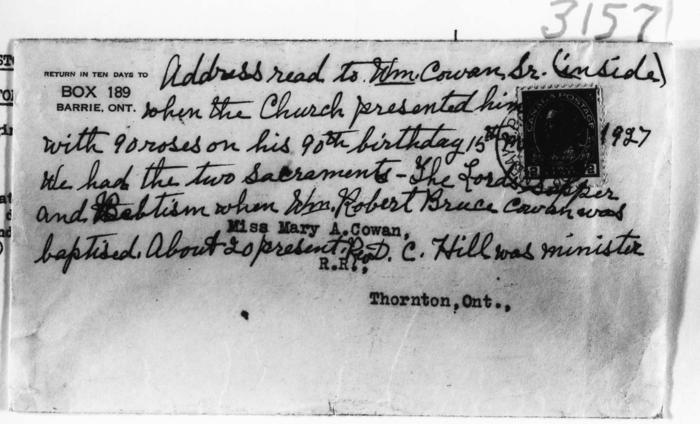 3157
RETURN IN TEN DAYS TO
BOX 189
BARRIE, ONT.
Address read to Wm. Cowan, Sr. (inside)
when the Church presented him
with 90 roses on his 90th birthday 15th 1927
We had the two Sacraments - The Lords Supper
and Babtism when Wm. Robert Bruce Cowan was
Miss Mary A. Cowan,
baptised. About 20 present. Rev D. C. Hill was minister
R.R.,
Thornton, Ont.,
CANADA POSTAGE